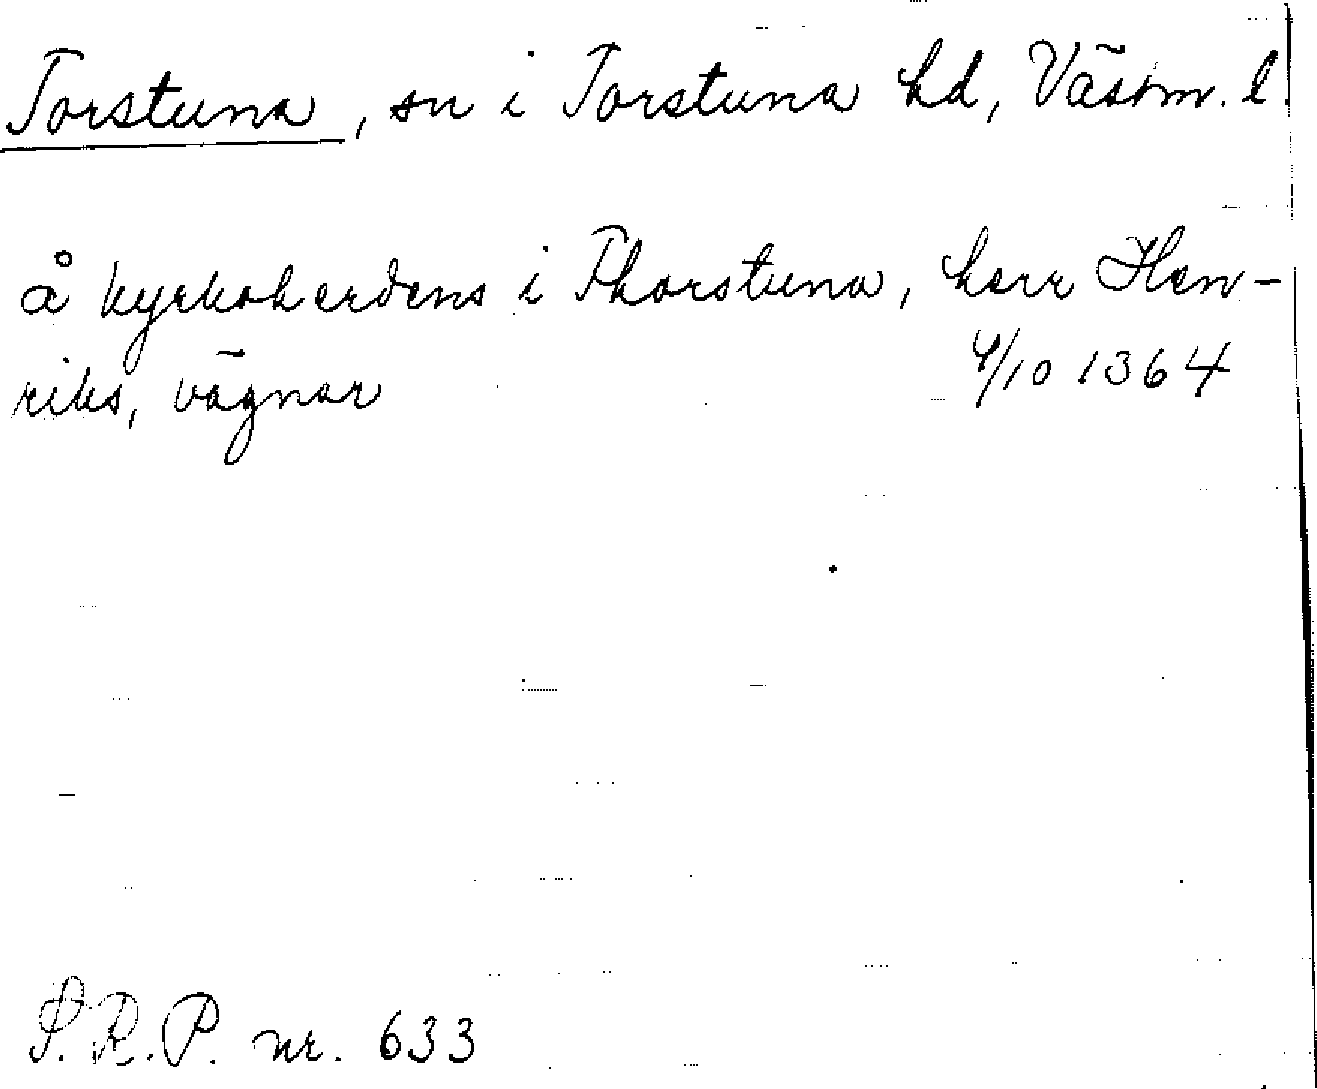 Torstuna, sn i Torstuna hd, Västm. l.
å kyrkoherdens i Thorstuna, herr Hen-
riks, vägnar 4/10 1364
S.R.P. nr. 633